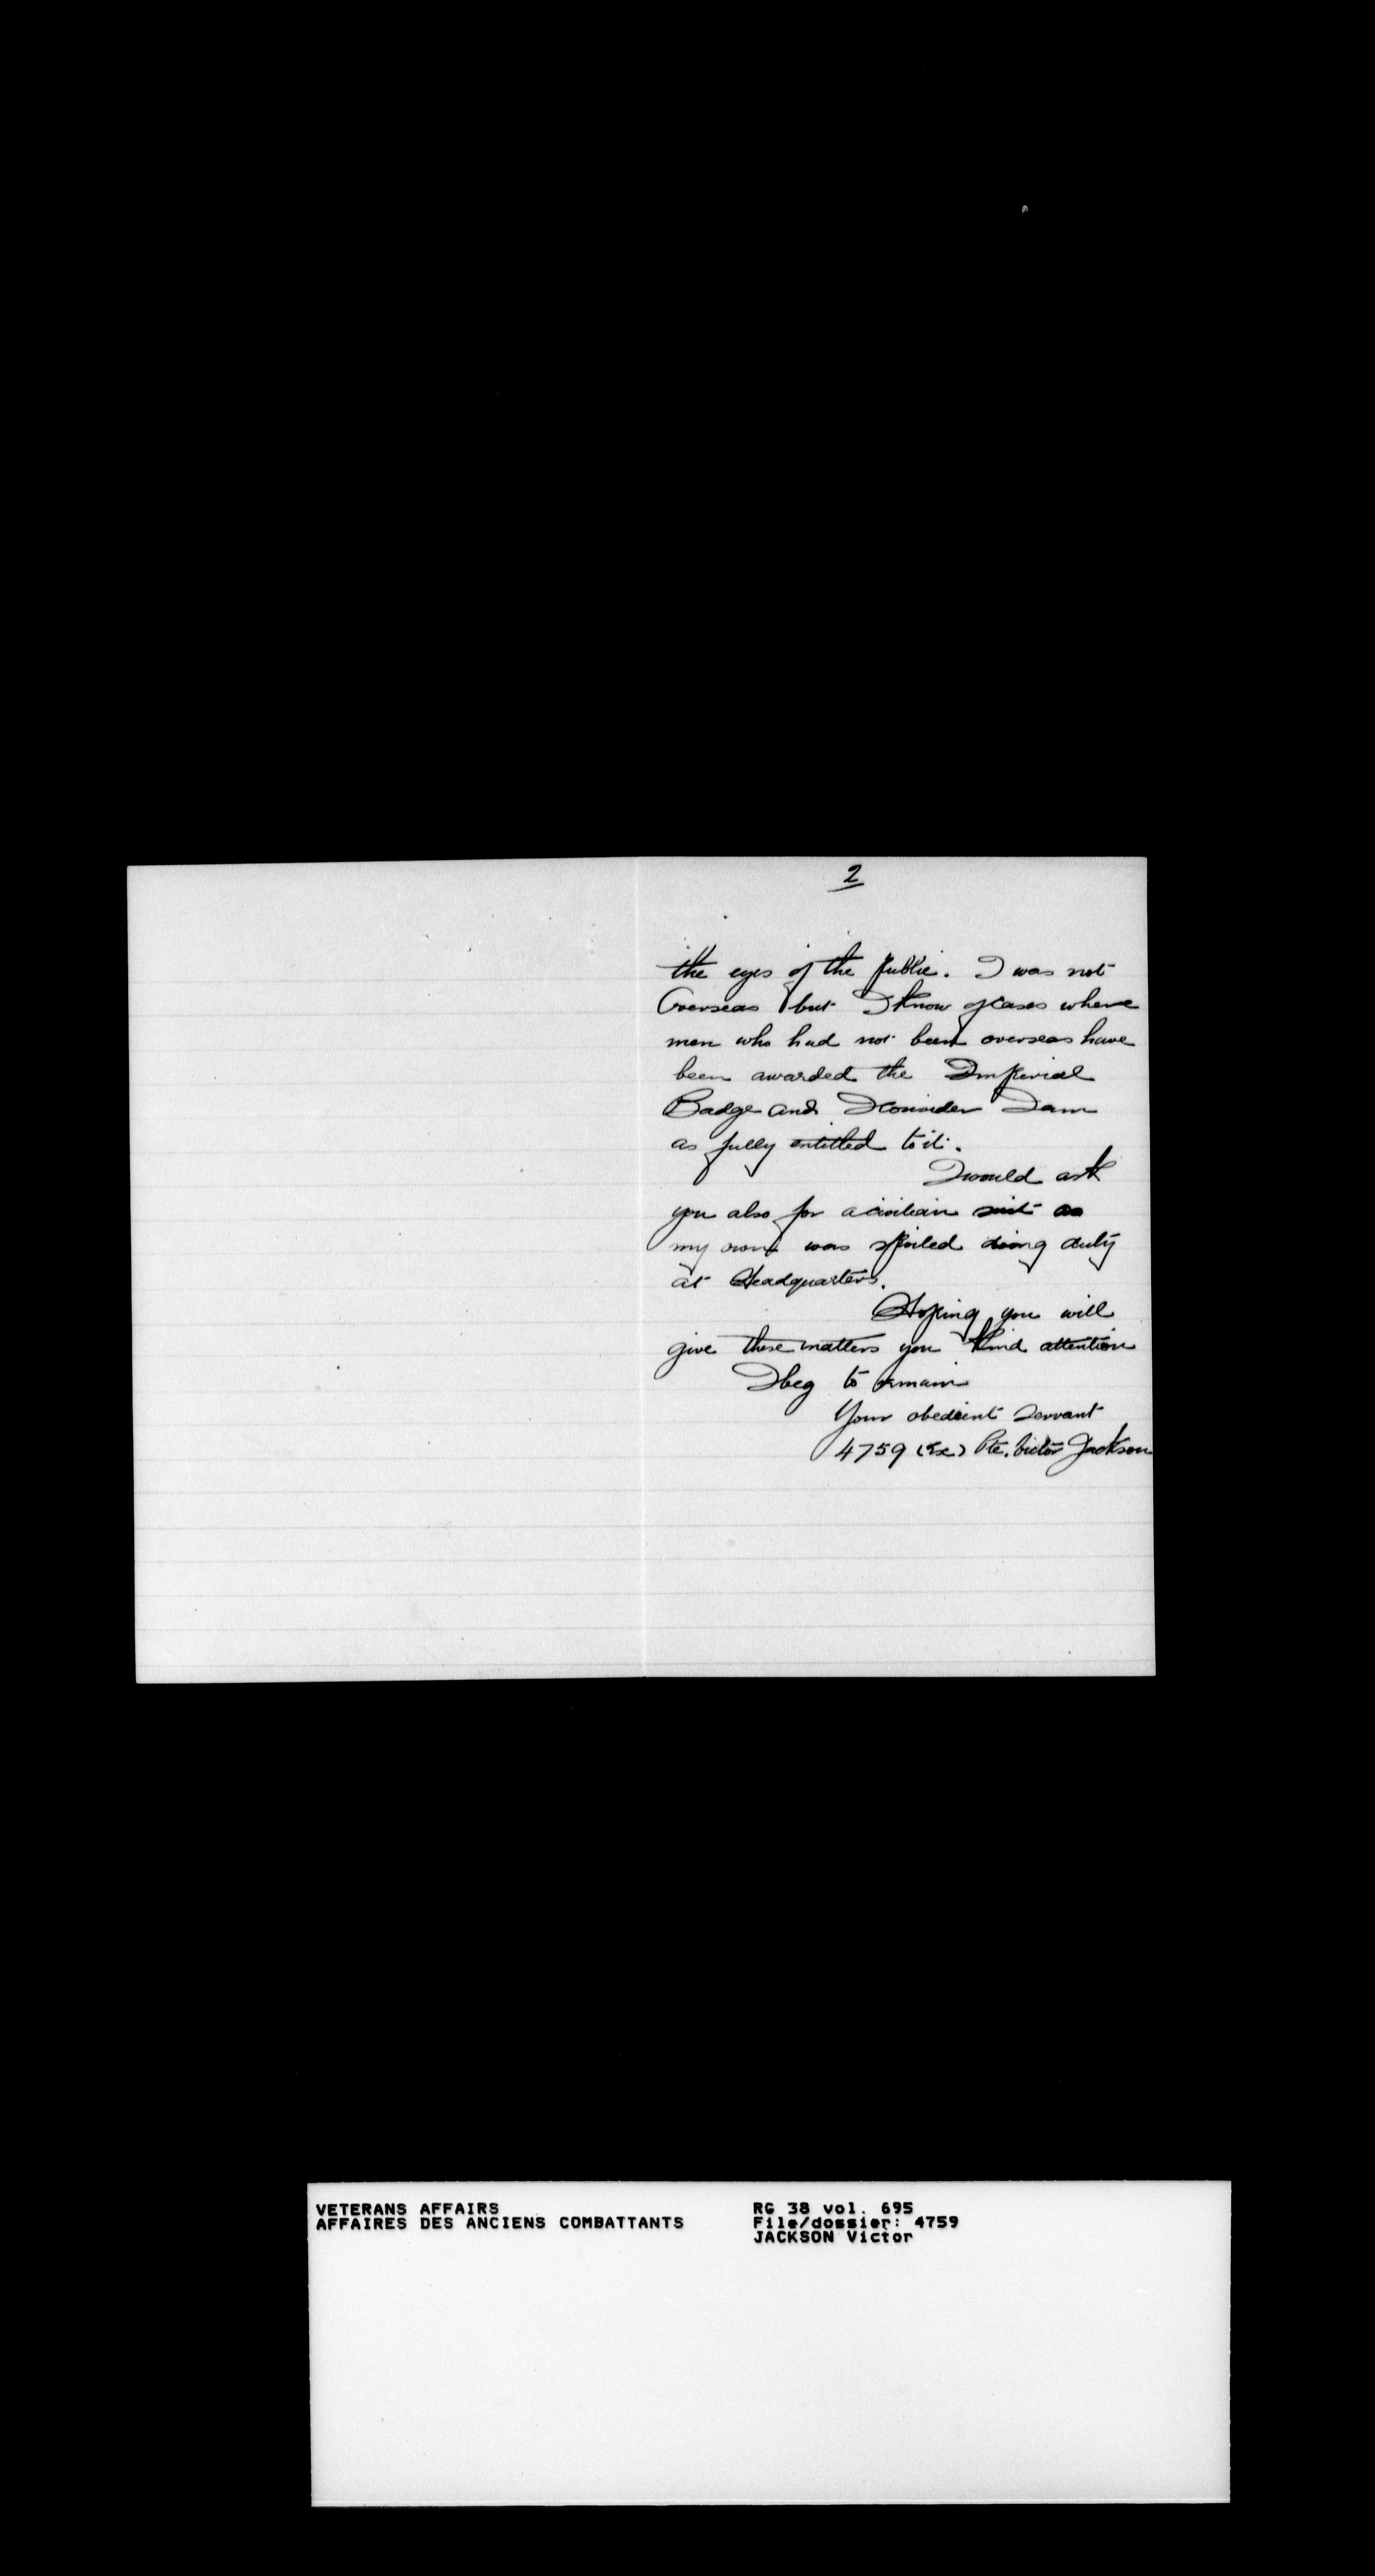 2
the eyes of the public. I was not
Overseas but I know of cases where
men who had not been overseas have
been awarded the Imperial
Badge and I consider I am
as fully entitled to it.
I would ask
you also for a civilian suit as
my own was spoiled doing duty
at Headquarters.
Hoping you will
give these matters you kind attention
I beg to remain
Your obedient Servant
4759 (Ex) Pte. Victor Jackson
VETERANS AFFAIRS
AFFAIRES DES ANCIENS COMBATTANTS
RG 38 vol. 695
File/dossier: 4759
JACKSON Victor